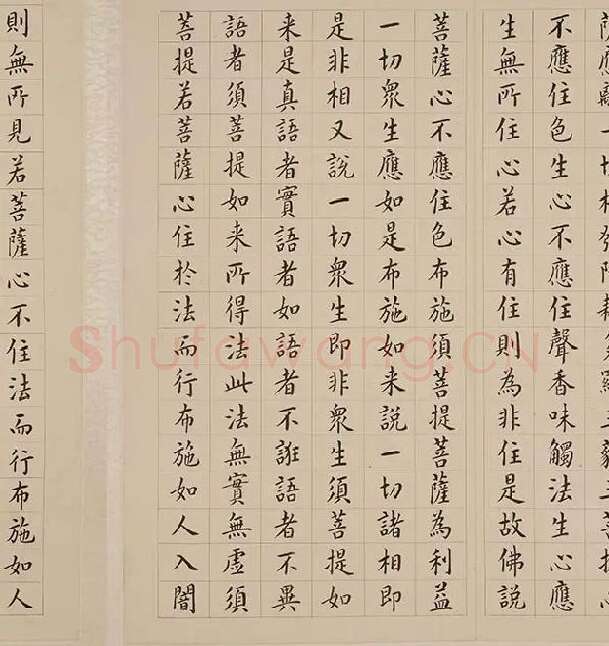 薩應離一切相發阿耨多羅三藐三菩提心
不應住色生心不應住聲香味觸法生心應
生無所住心若心有住則為非住是故佛說
菩薩心不應住色布施須菩提菩薩為利益
一切眾生應如是布施如来說一切諸相即
是非相又說一切眾生即非眾生須菩提如
来是真語者實語者如語者不誑語者不異
語者須菩提如来所得法此法無實無虛須
菩提若菩薩心住於法而行布施如人入闇
則無所見若菩薩心不住法而行布施如人
Shufawang.CN